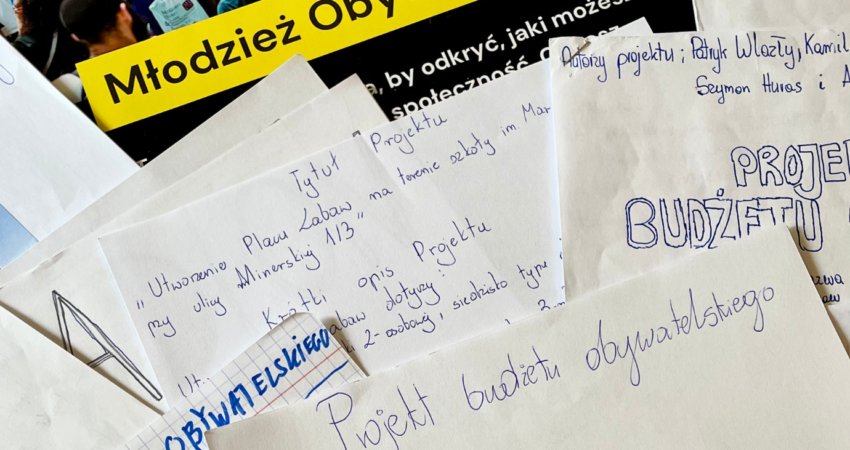 Młodzież Oby
, by odkryć, jaki możesz
społeczność.
Autorzy projektu: Patryk Wlazły, Kamil
Szymon Huras i A
PROJE
BUDŻETU
Tytuł Projektu
"Utworzenie Placu Zabaw na terenie szkoły im. Mar
przy ulicy Minerskiej 1/3"
Krótki opis Projektu
abaw dotyczy:
2-osobowy, siedzisko typu
A
OBYWATELSKIEGO
Projekt budżetu obywatelskiego